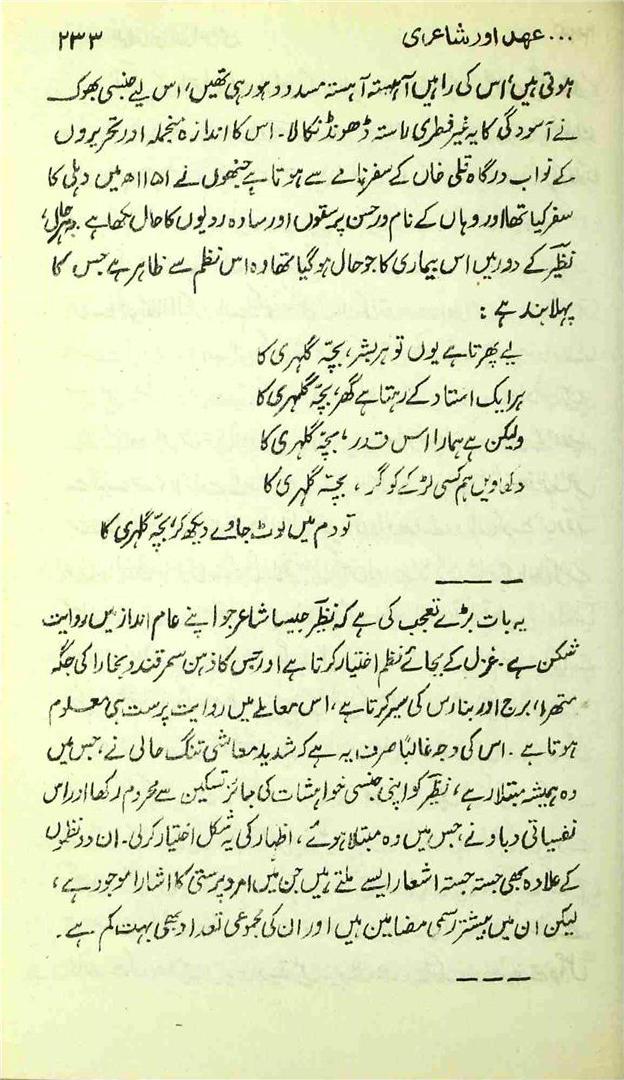 ... عہد اور شاعری ۲۳۳
ہوتی ہیں، اس کی راہیں آہستہ آہستہ مسدود ہو رہی تھیں، اس لیے جنسی بھوک
نے آسودگی کا یہ غیر فطری راستہ ڈھونڈ نکالا۔ اس کا اندازہ منجملہ اور تحریروں
کے نواب درگاہ قلی خاں کے سفر نامے سے ہوتا ہے جنھوں نے ۱۱۵۱ھ میں دہلی کا
سفر کیا تھا اور وہاں کے نام ور حسن پرستوں اور سادہ رویوں کا حال لکھا ہے۔ بہرحال،
نظیرؔ کے دور میں اس بیماری کا جو حال ہو گیا تھا وہ اس نظم سے ظاہر ہے جس کا
پہلا بند ہے :
لیے پھرتا ہے یوں تو ہر بشر، بچہّ گلہری کا
ہر ایک استاد کے رہتا ہے گھر، بچہّ گلہری کا
ولیکن ہے ہمارا اس قدر، بچہّ گلہری کا
دکھاویں ہم کسی لڑکے کو گر، بچہّ گلہری کا
تو دم میں لوٹ جاوے دیکھ کر، بچہّ گلہری کا
یہ بات بڑے تعجب کی ہے کہ نظیرؔ جیسا شاعر جو اپنے عام انداز میں روایت
شکن ہے۔ غزل کے بجائے نظم اختیار کرتا ہے اور جس کا ذہن سمرقند و بخارا کی جگہ
متھرا، برج اور بنارس کی سیر کرتا ہے، اس معاملے میں روایت پرست ہی معلوم
ہوتا ہے۔ اس کی وجہ غالباً صرف یہ ہے کہ شدید معاشی تنگ حالی نے، جس میں
وہ ہمیشہ مبتلا رہے، نظیرؔ کو اپنی جنسی خواہشات کی جائز تسکین سے محروم رکھا اور اس
نفسیاتی دباؤ نے، جس میں وہ مبتلا ہوئے، اظہار کی یہ شکل اختیار کر لی۔ ان دو نظموں
کے علاوہ بھی جستہ جستہ اشعار ایسے ملتے ہیں جن میں امرد پرستی کا اشارا موجود ہے،
لیکن ان میں بیشتر رسمی مضامین ہیں اور ان کی مجموعی تعداد بھی بہت کم ہے۔